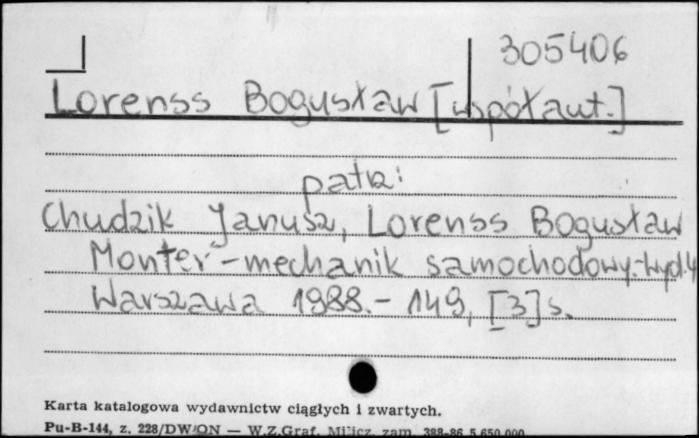 305406
Lorenss Bogusław [współaut.]
patrz:
Chudzik Janusz, Lorenss Bogusław
Monter-mechanik samochodowy.-Wyd.4
Warszawa 1988.- 149, [3]s.
Karta katalogowa wydawnictw ciągłych i zwartych.
Pu-B-144, z. 228/DW/ON — W.Z.Graf. Milicz, zam. 388-86 5.650.000